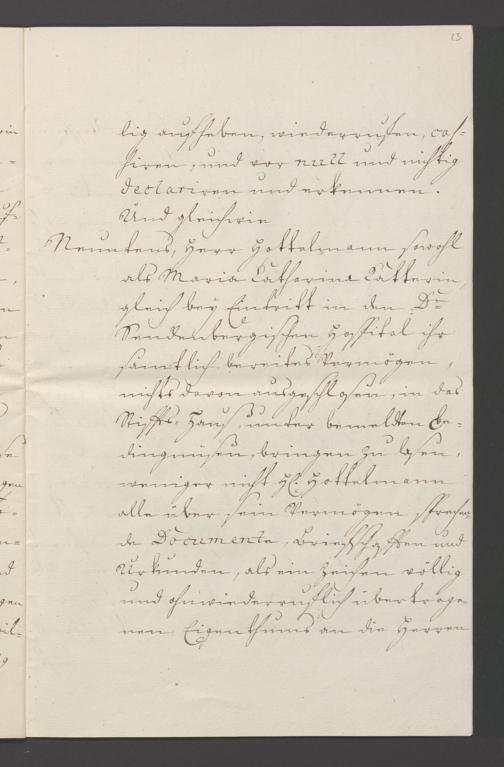 23
lig aufheben, wiederrufen, cas=
siren, und vor null und nichtig
declariren und erkennen.
Und gleichwie
Neuntens, Herr Hottelmann sowohl
als Maria Catharina Kätterin,
gleich bey Eintritt in den Dr.
Senckenbergischen Hospital ihr
sämtlich bereites Vermögen,
nichts davon ausgeschlosen, in das
Stiffts=Hauß, unter bemeldten Be=
dingnüsen, bringen zu lasen,
weniger nicht H. Hottelmann
alle über sein Vermögen sprechen=
de Documente, Briefschafften und
Urkunden, als ein Zeichen völlig
und ohnwiederruflich übertrage=
nen Eigenthums an die Herren